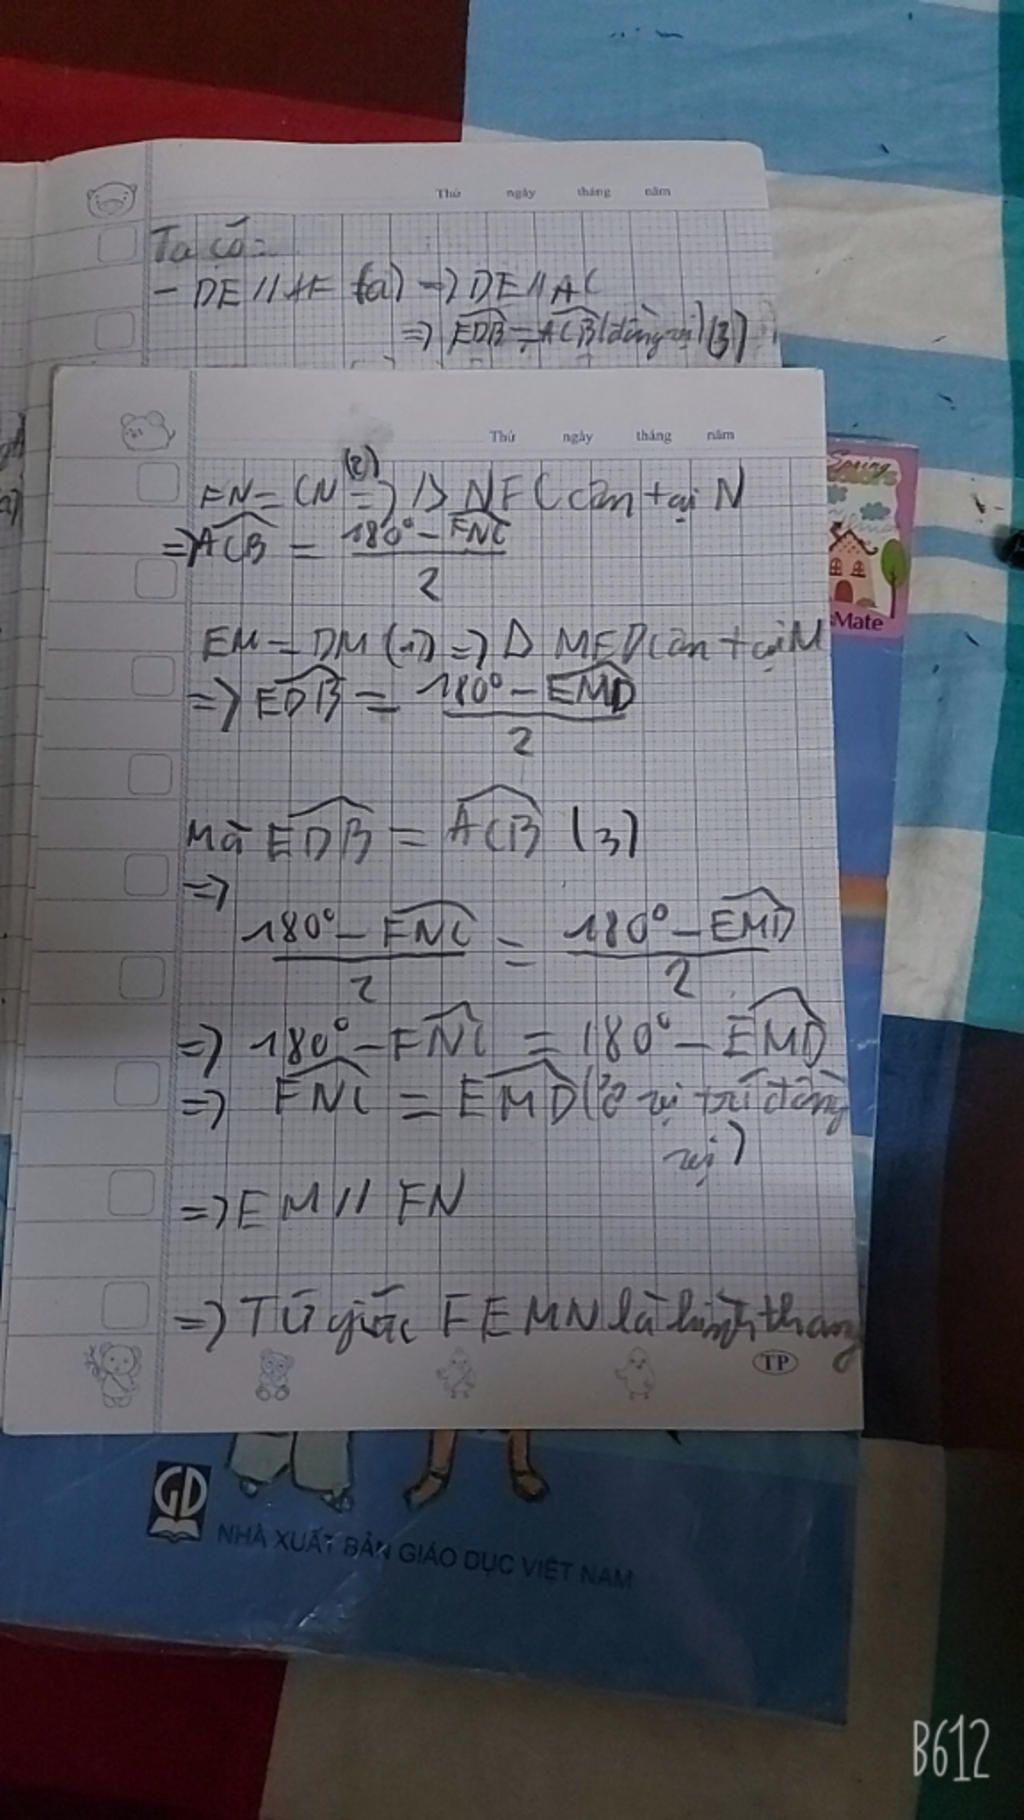 Thứ ngày tháng năm
Ta có:
- DE // AF (a) => DE // AC
=> EDB = ACB (đồng vị) (3)
Thứ ngày tháng năm
(2)
FN = CN => Δ NFC cân tại N
=> ACB = 180° - FNC
2
EM = DM (1) => Δ MED cân tại M
=> EDB = 180° - EMD
2
Mà EDB = ACB (3)
=>
180° - FNC = 180° - EMD
2 2
=> 180° - FNC = 180° - EMD
=> FNC = EMD (ở vị trí đồng
vị)
=> EM // FN
=> Tứ giác FEMN là hình thang
TP
Spring
Mate
GD
NHÀ XUẤT BẢN GIÁO DỤC VIỆT NAM
B612